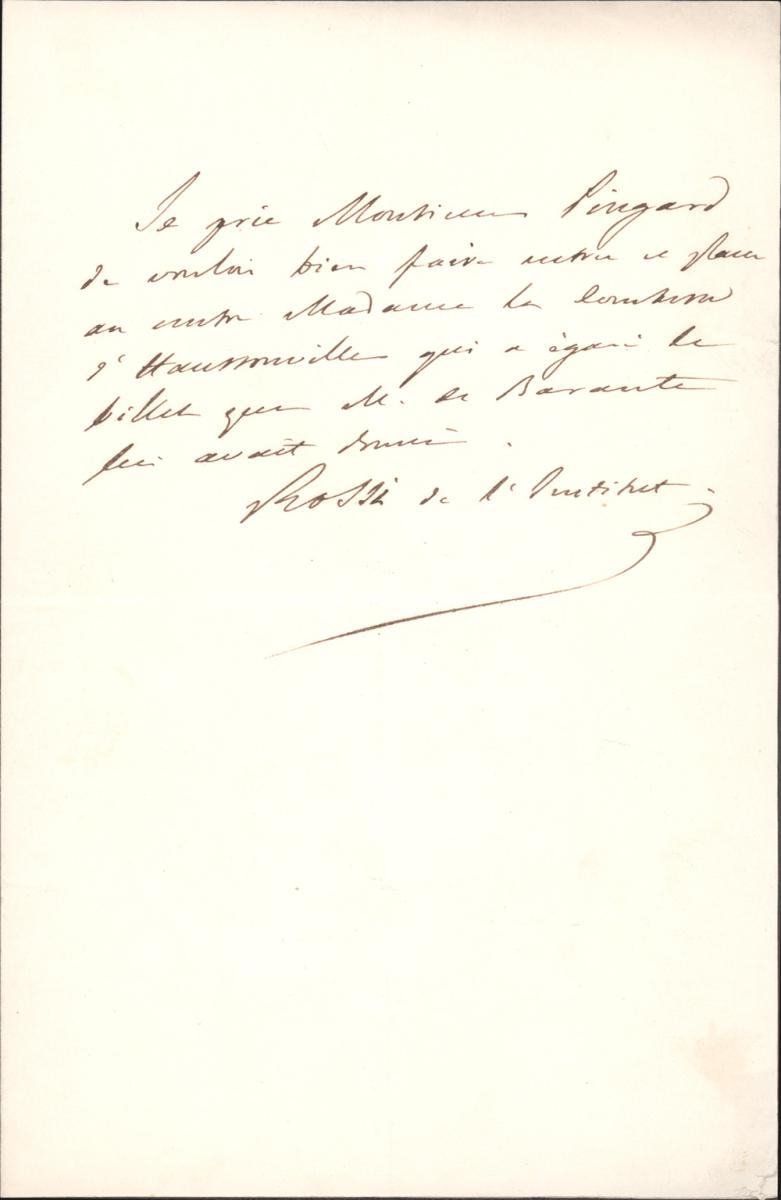 Je prie Monsieur Pingard
de vouloir bien faire entrer et placer
au centre Madame la Comtesse
d'Haussonville qui a égaré le
billet que M. de Barante
lui avait donné.
Rossi de l'Institut